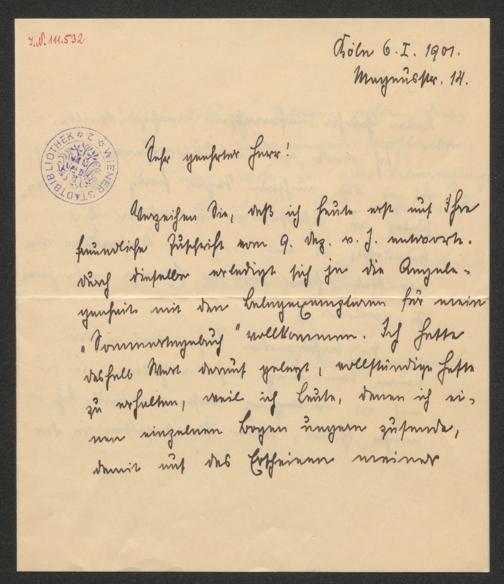 I.N. 111.532
Köln 6. I. 1901.
Magnusstr. 14.
WIENER STADTBIBLIOTHEK
Sehr geehrter Herr!
Verzeihen Sie, daß ich heute erst auf Ihre
freundliche Zuschrift vom 9. Dez. v. J. antworte.
durch dieselbe erledigt sich ja die Angele-
genheit mit den Belegexemplaren für mein
"Sommertagebuch" vollkommen. Ich hatte
deshalb Wert darauf gelegt, vollständige Hefte
zu erhalten, weil ich Leute, denen ich ei-
nen einzelnen Bogen ungern zusende,
damit auf das Erscheinen meiner